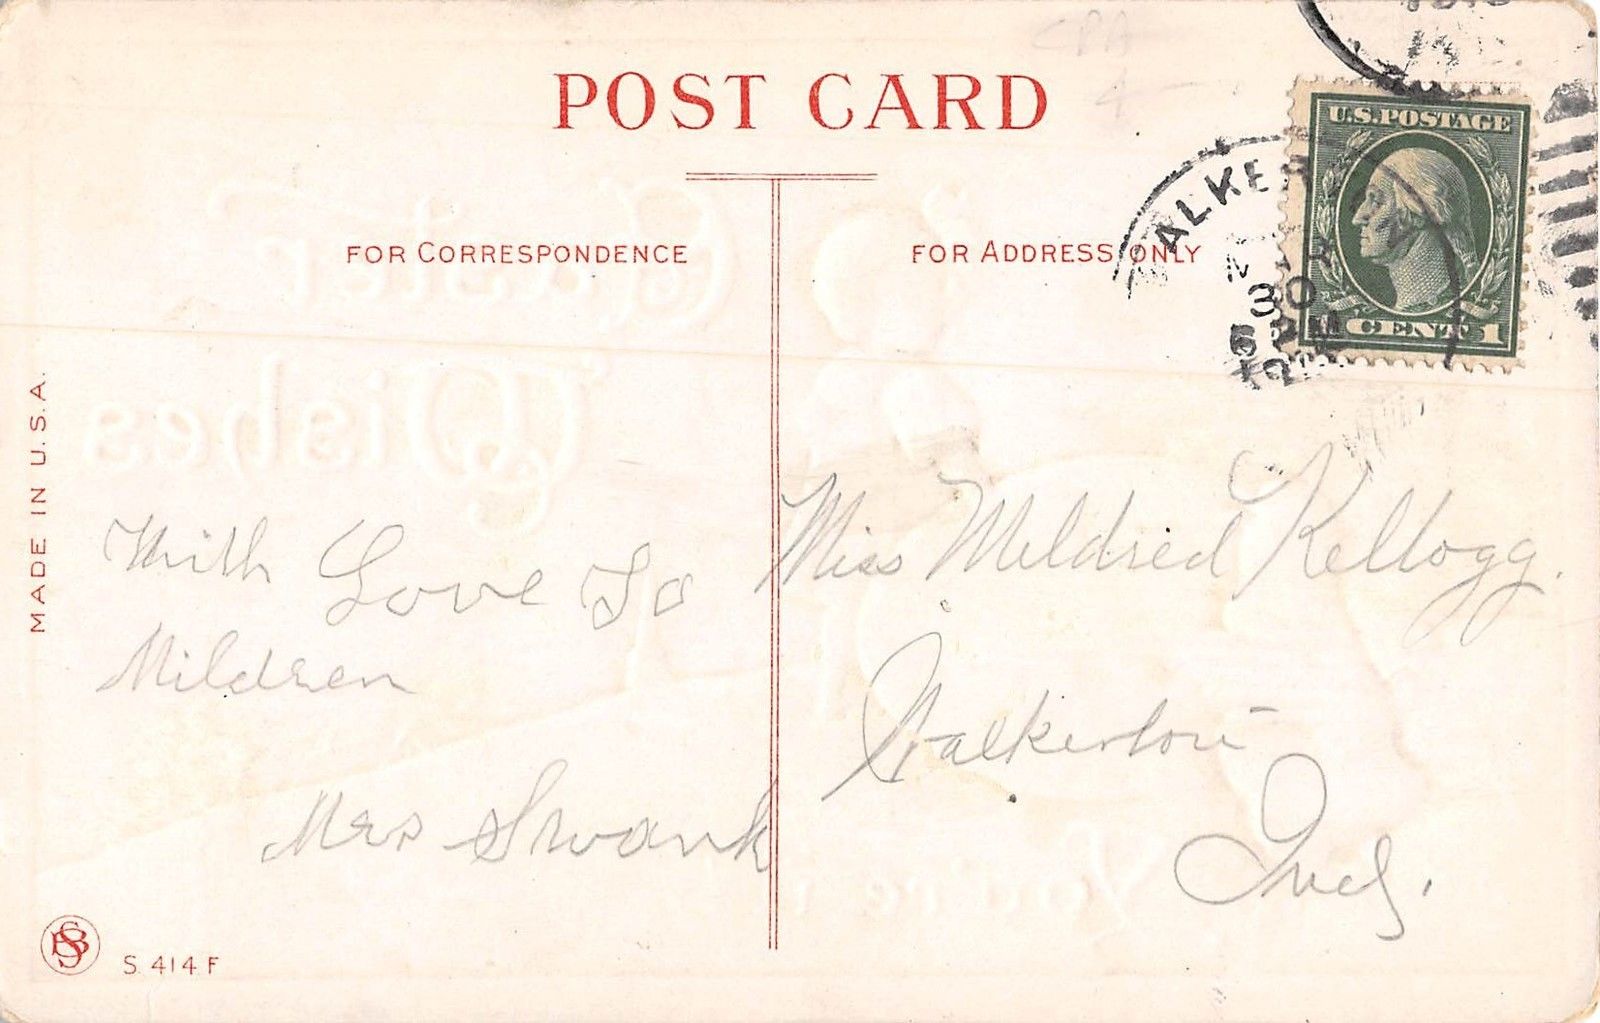 POST CARD
CPA
4-
FOR CORRESPONDENCE
FOR ADDRESS ONLY
U.S. POSTAGE
CENT 1
ALKER
30
MADE IN U.S.A.
Easter
Wishes
With Love To
Mildren
Mrs Swank
Miss Mildred Kellogg.
Walkerton
Ind.
S. 414 F